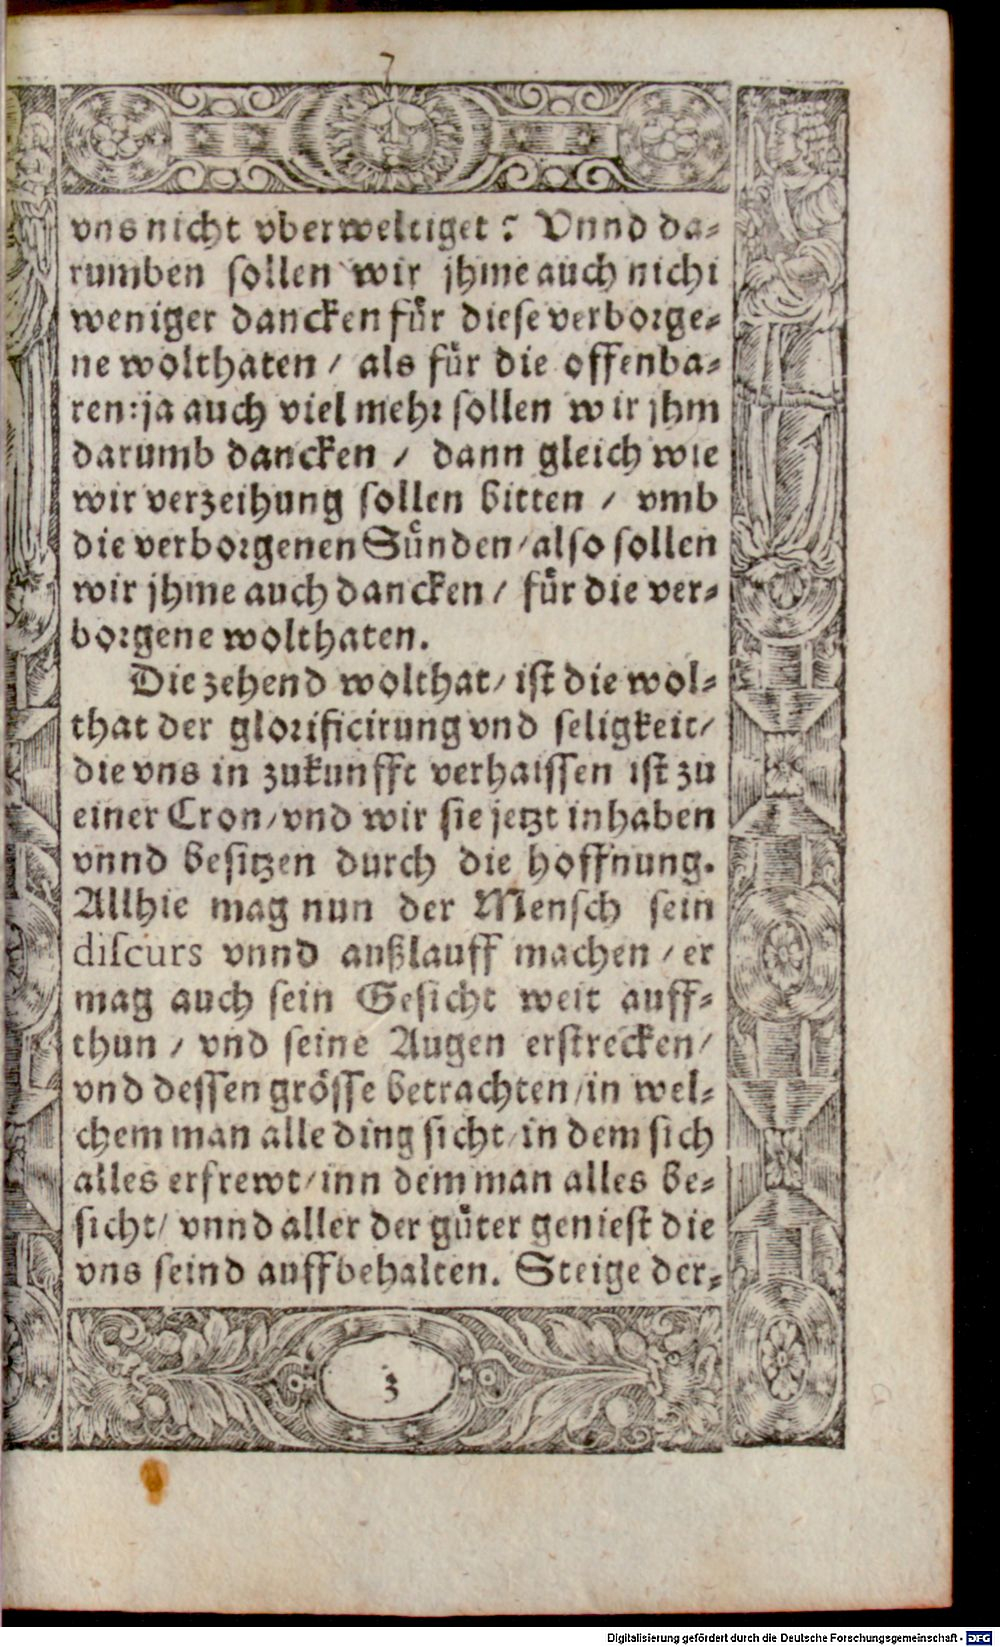 7
vns nicht vberweltiget? Vnnd da-
rumben sollen wir jhme auch nicht
weniger dancken für diese verborge-
ne wolthaten / als für die offenba-
ren: ja auch viel mehr sollen wir jhm
darumb dancken / dann gleich wie
wir verzeihung sollen bitten / vmb
die verborgenen Sünden / also sollen
wir jhme auch dancken / für die ver-
borgene wolthaten.
Die zehend wolthat / ist die wol-
that der glorificirung vnd seligkeit /
die vns in zukunfft verhaissen ist zu
einer Cron / vnd wir sie jetzt inhaben
vnnd besitzen durch die hoffnung.
Allhie mag nun der Mensch sein
discurs vnnd außlauff machen / er
mag auch sein Gesicht weit auff-
thun / vnd seine Augen erstrecken /
vnd dessen grösse betrachten / in wel-
chem man alle ding sicht / in dem sich
alles erfrewt / inn dem man alles be-
sicht / vnnd aller der güter geniest die
vns seind auffbehalten. Steige der-
3
Digitalisierung gefördert durch die Deutsche Forschungsgemeinschaft - DFG